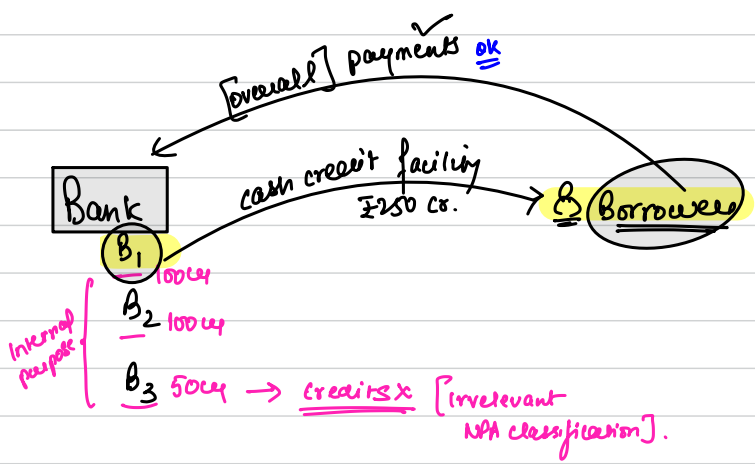 [overall] payments ok
Bank
cash credit facility
₹250 cr.
Borrower
B1 100cr
B2 100cr
B3 50cr → credits x [irrelevant
NPA classification].
Internal
purpose